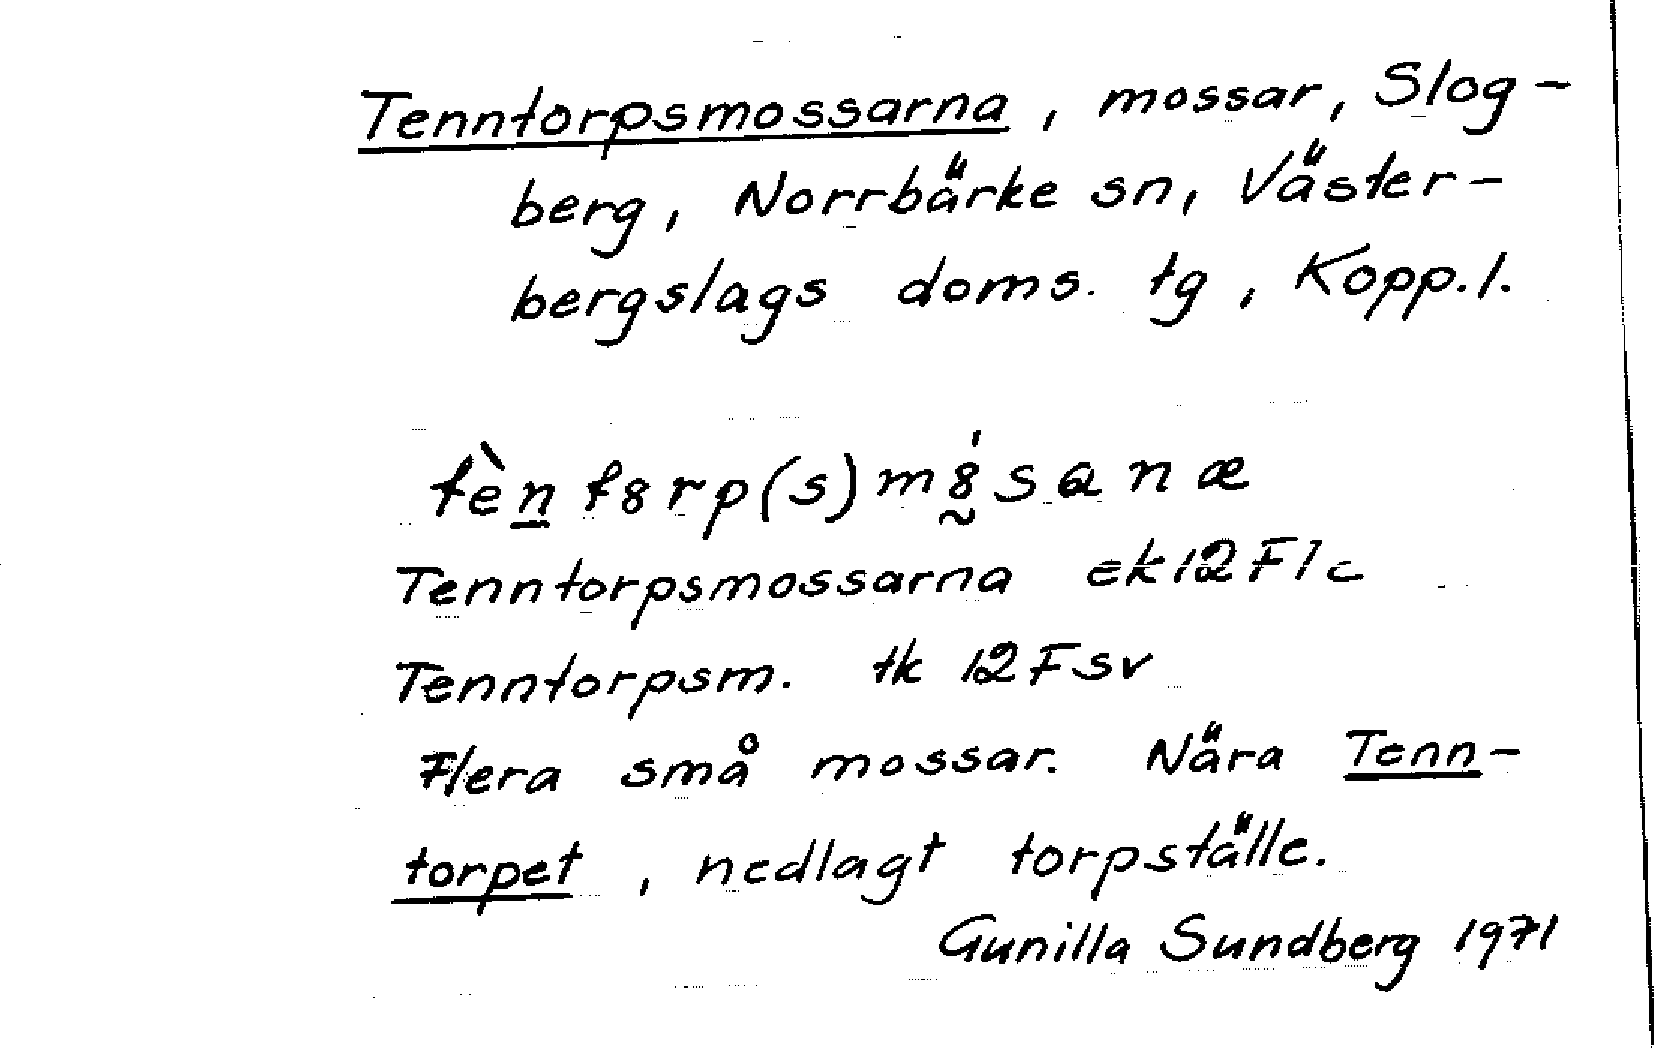 Tenntorpsmossarna, mossar, Slog-
berg, Norrbärke sn, Väster-
bergslags doms. tg, Kopp. l.
tèn t8rp(s)m8̰́sanæ
Tenntorpsmossarna ek 12 F 1 c
Tenntorpsm. tk 12 F sv
Flera små mossar. Nära Tenn-
torpet, nedlagt torpställe.
Gunilla Sundberg 1971